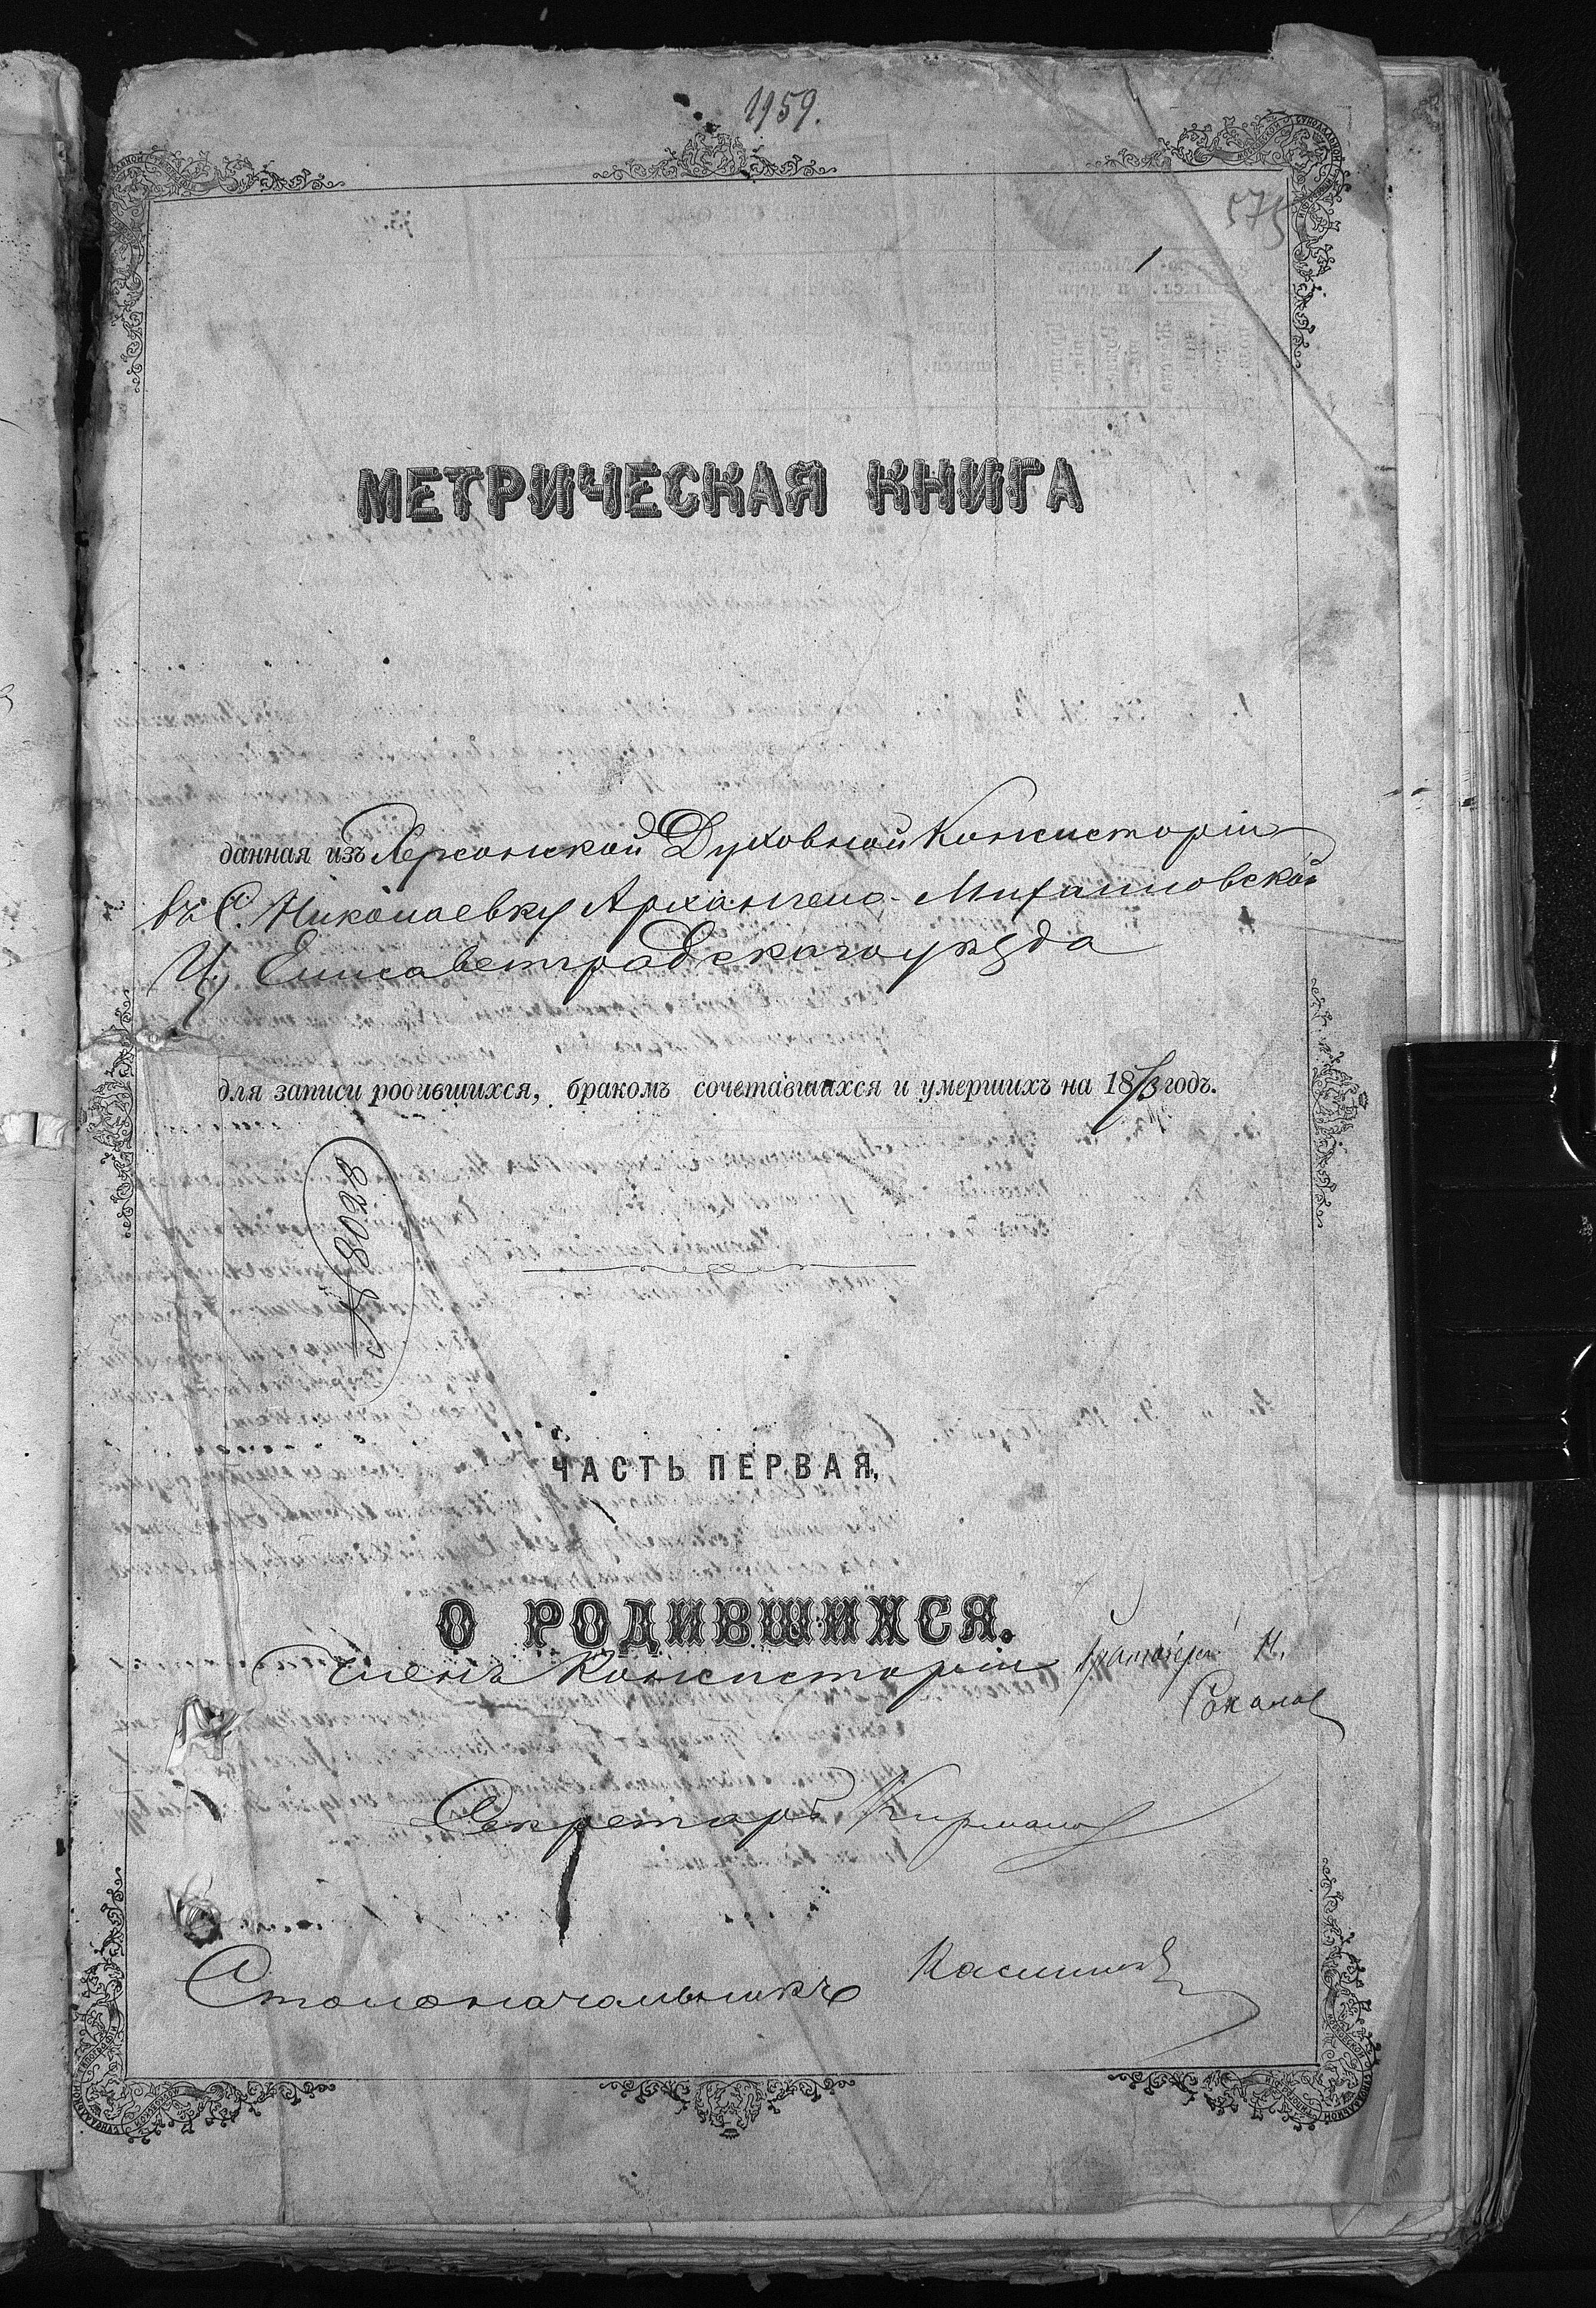 1159.
575
1
МЕТРИЧЕСКАЯ КНИГА
данная изъ Херсонской Духовной Консисторіи
въ С. Николаевку Архангело-Михайловской
Ц, Елисаветградскаго уѣзда
для записи родившихся, бракомъ сочетавшихся и умершихъ на 1873 годъ.
№ 8028
ЧАСТЬ ПЕРВАЯ,
О РОДИВШИХСЯ.
Членъ Консисторіи Протоіерей Н.
Соколов
Секретарь
Столоначальникъ